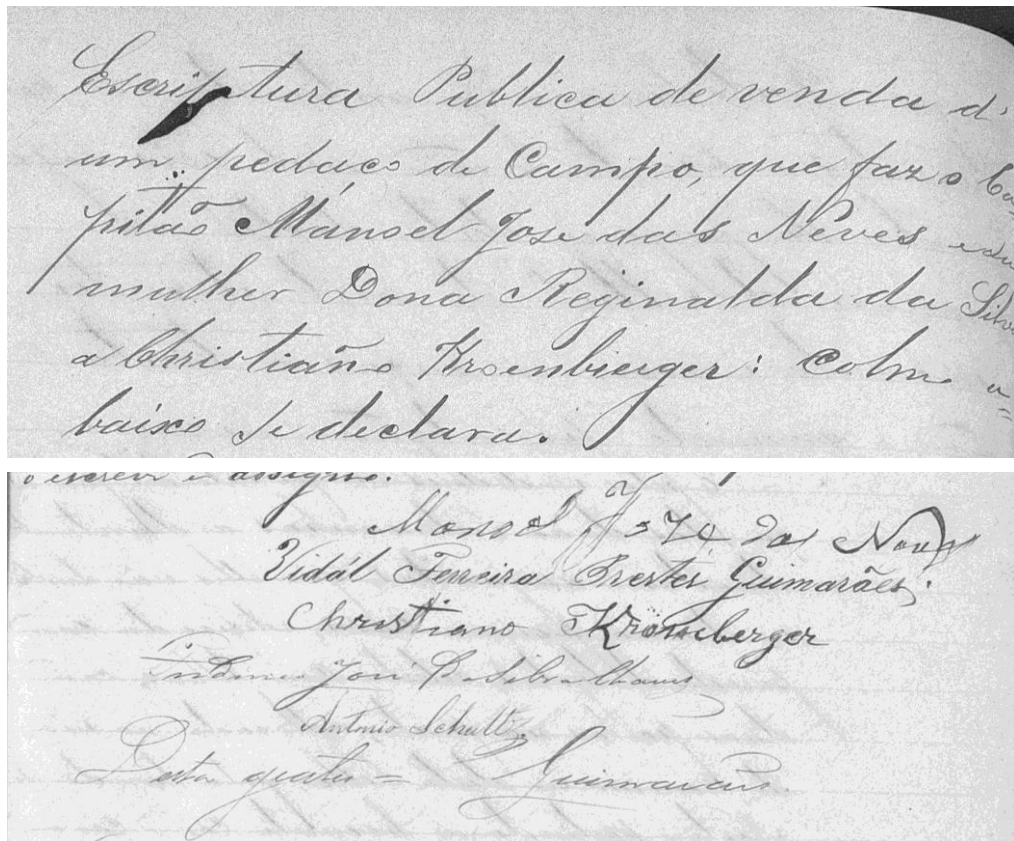 Escriptura Publica de venda d'
um pedaco de Campo, que faz o Ca-
pitão Manoel Jose das Neves e su
mulher Dona Reginalda da Silva
a Christiano Kroenbierger: Colmo a=
baixo se declara.
o escrevi e assigno.
Manoel José das Neves
Vidál Ferreira Prestes Guimarães.
Christiano Kronnberger
José da Silva Chaves
Antonio Schultz
Desta gratis = Guimarães